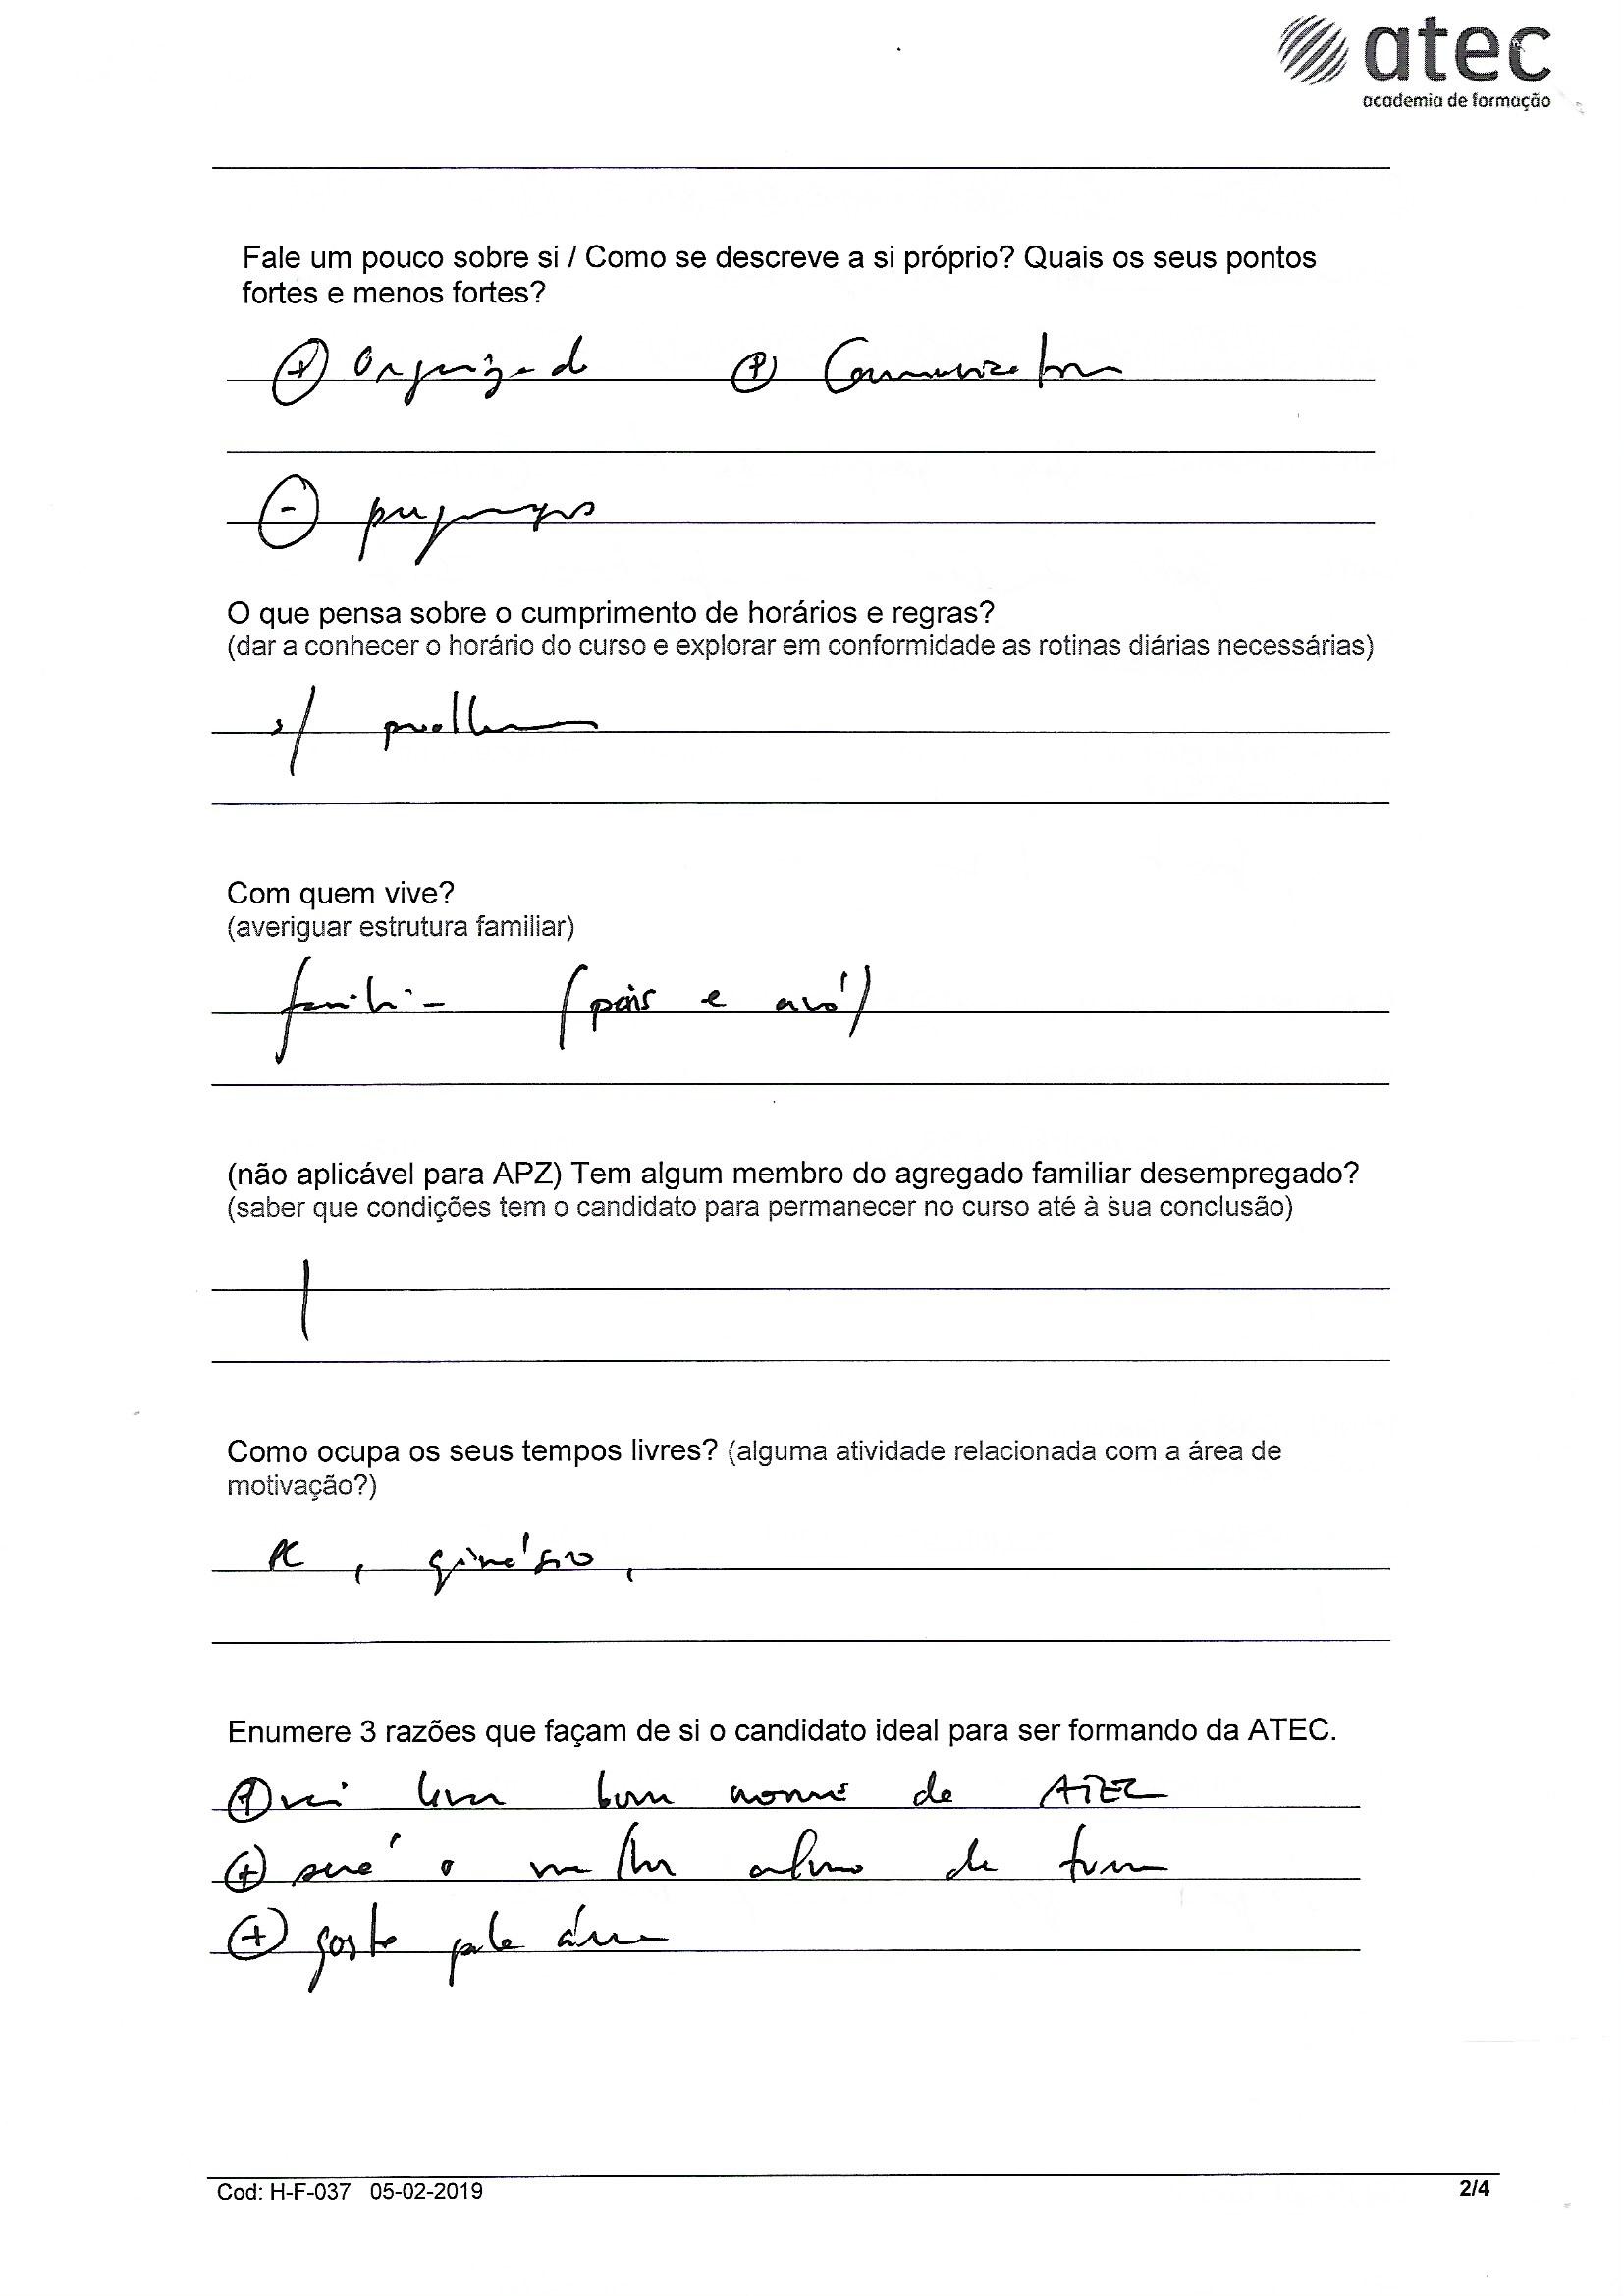 atec
academia de formação
Fale um pouco sobre si / Como se descreve a si próprio? Quais os seus pontos
fortes e menos fortes?
+ Organizado + Comunicator
-
O que pensa sobre o cumprimento de horários e regras?
(dar a conhecer o horário do curso e explorar em conformidade as rotinas diárias necessárias)
s/ problema
Com quem vive?
(averiguar estrutura familiar)
família (pais e avó)
(não aplicável para APZ) Tem algum membro do agregado familiar desempregado?
(saber que condições tem o candidato para permanecer no curso até à sua conclusão)
/
Como ocupa os seus tempos livres? (alguma atividade relacionada com a área de
motivação?)
PC, ginásio,
Enumere 3 razões que façam de si o candidato ideal para ser formando da ATEC.
+ vai levar bom nome da ATEC
+ será o melhor aluno da turma
+ gosto pela área
Cod: H-F-037 05-02-2019
2/4